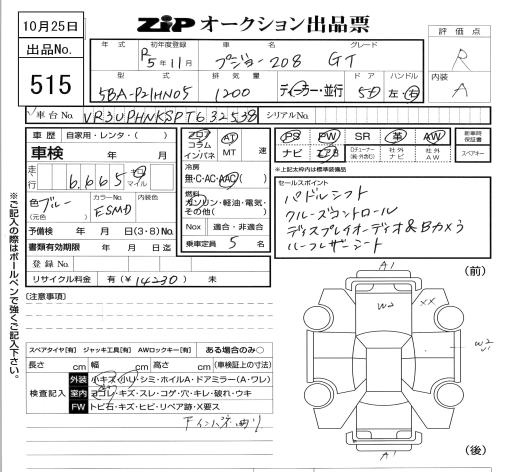 10月25日
ZIP オークション出品票
評価点
R
出品No.
515
年式
初年度登録
車名
グレード
R5年11月
プジョー208 GT
内装
A
型式
排気量
ドア
ハンドル
5BA-P21HN05
1200
ディーラー・並行
5D
左・右
車台No.
VR3UPHNKSPT632538
シリアルNo.
車歴
自家用・レンタ・( )
車検
年 月
走行
6,665
キロ
マイル
色
ブルー
(元色)
カラーNo.
ESMD
予備検 年 月 日(3・8)No.
書類有効期限 年 月 日迄
登録No.
リサイクル料金 有(¥14230)無
フロア
コラム
インパネ
AT
MT
速
冷房
無・C・AC・AAC( )
燃料
ガソリン・軽油・電気・
その他( )
Nox 適合・非適合
乗車定員 5 名
PS PW SR 革 AW
新車時保証書
ナビ エアB
社外ナビ
社外AW
スペアキー
※上記枠内は標準装備品
セールスポイント
パドルシフト
クルーズコントロール
ディスプレイオーディオ&Bカメラ
ハーフレザーシート
※ご記入の際はボールペンで強くご記入下さい。
[注意事項]
スペアタイヤ[有] ジャッキ工具[有] AWロックキー[有] ある場合のみ○
長さ cm 幅 cm 高さ cm (車検証上の寸法)
検査記入
外装 小キズ・小U・シミ・ホイルA・ドアミラー(A・ワレ)
室内 ヨゴレ・キズ・スレ・コゲ・穴・キレ・破れ・ウキ
FW トビ石・キズ・ヒビ・リペア跡・X要ス
(前)
A1
W2
XX
W2
A1
(後)